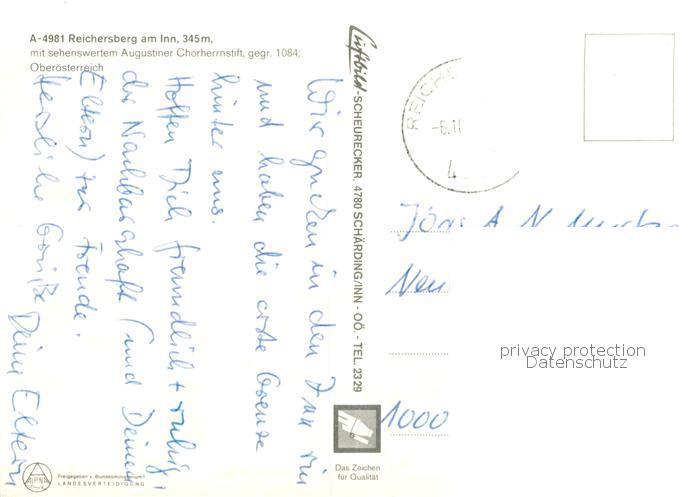 A-4981 Reichersberg am Inn, 345m,
mit sehenswertem Augustiner Chorherrnstift, gegr. 1084;
Oberösterreich
Wir gucken in den Inn rin
und haben die erste Grenze
hinter uns.
Hoffen Dich freundlich + ruhig,
die Nachbarschaft (und Deinen
Eltern) zur Freude.
Herzliche Grüße Deine Eltern
Luftbild-SCHEURECKER, 4780 SCHÄRDING/INN - OÖ. - TEL. 2329
REICHE
-6.10
4
Jörg A. N.
Neu
1000
privacy protection
Datenschutz
Das Zeichen
für Qualität
ALPINA
Freigegeben v. Bundesministerium f.
LANDESVERTEIDIGUNG